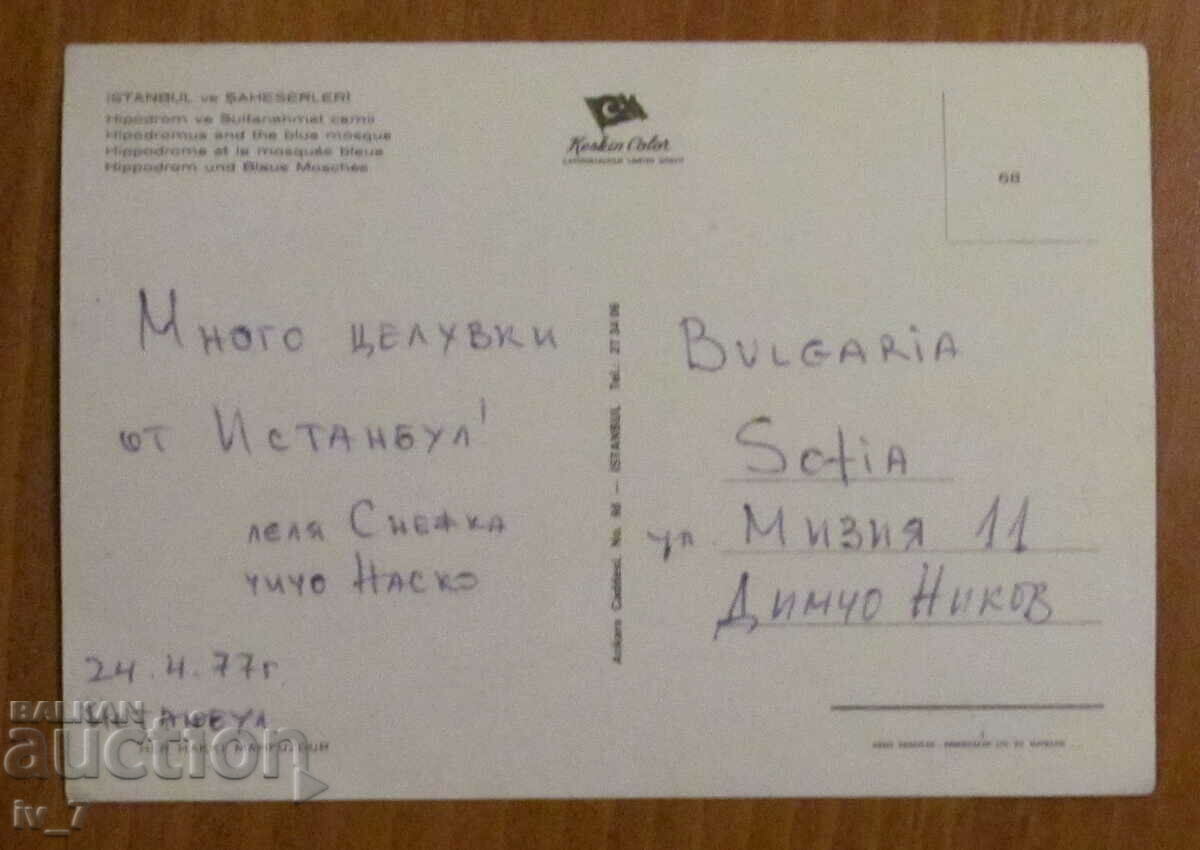 İSTANBUL ve ŞAHESERLERİ
Hipodrom ve Sultanahmet camii
Hipodromus and the blue mosque
Hippodrome et la mosquée bleue
Hippodrom und Blaue Moschee
Keskin Color
68
Много целувки
от Истанбул!
леля Снежка
чичо Наско
24.4.77г.
Истанбул
HER HAKKI MAHFUZDUR
Ankara Caddesi. No. 98 — İSTANBUL Tel.: 27 34 06
BULGARIA
Sofia
ул. Мизия 11
Димчо Ников
BALKAN
auction
iv_7